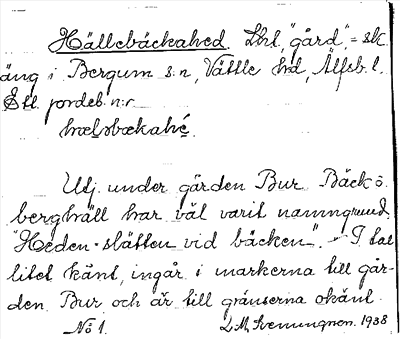 Hällebäckahed. Lht, "gård", = sk.
äng i Bergum s:n, Vättle hd, Älfsb. l.
Ett jordeb. n:r
hælsbækahé.
Utj. under gården Bur. Bäck o.
berghäll har väl varit namngrund.
"Heden - slätten vid bäcken". - I tal
litet känt, ingår i markerna till går-
den Bur och är till gränserna okänt.
No 1. 1938